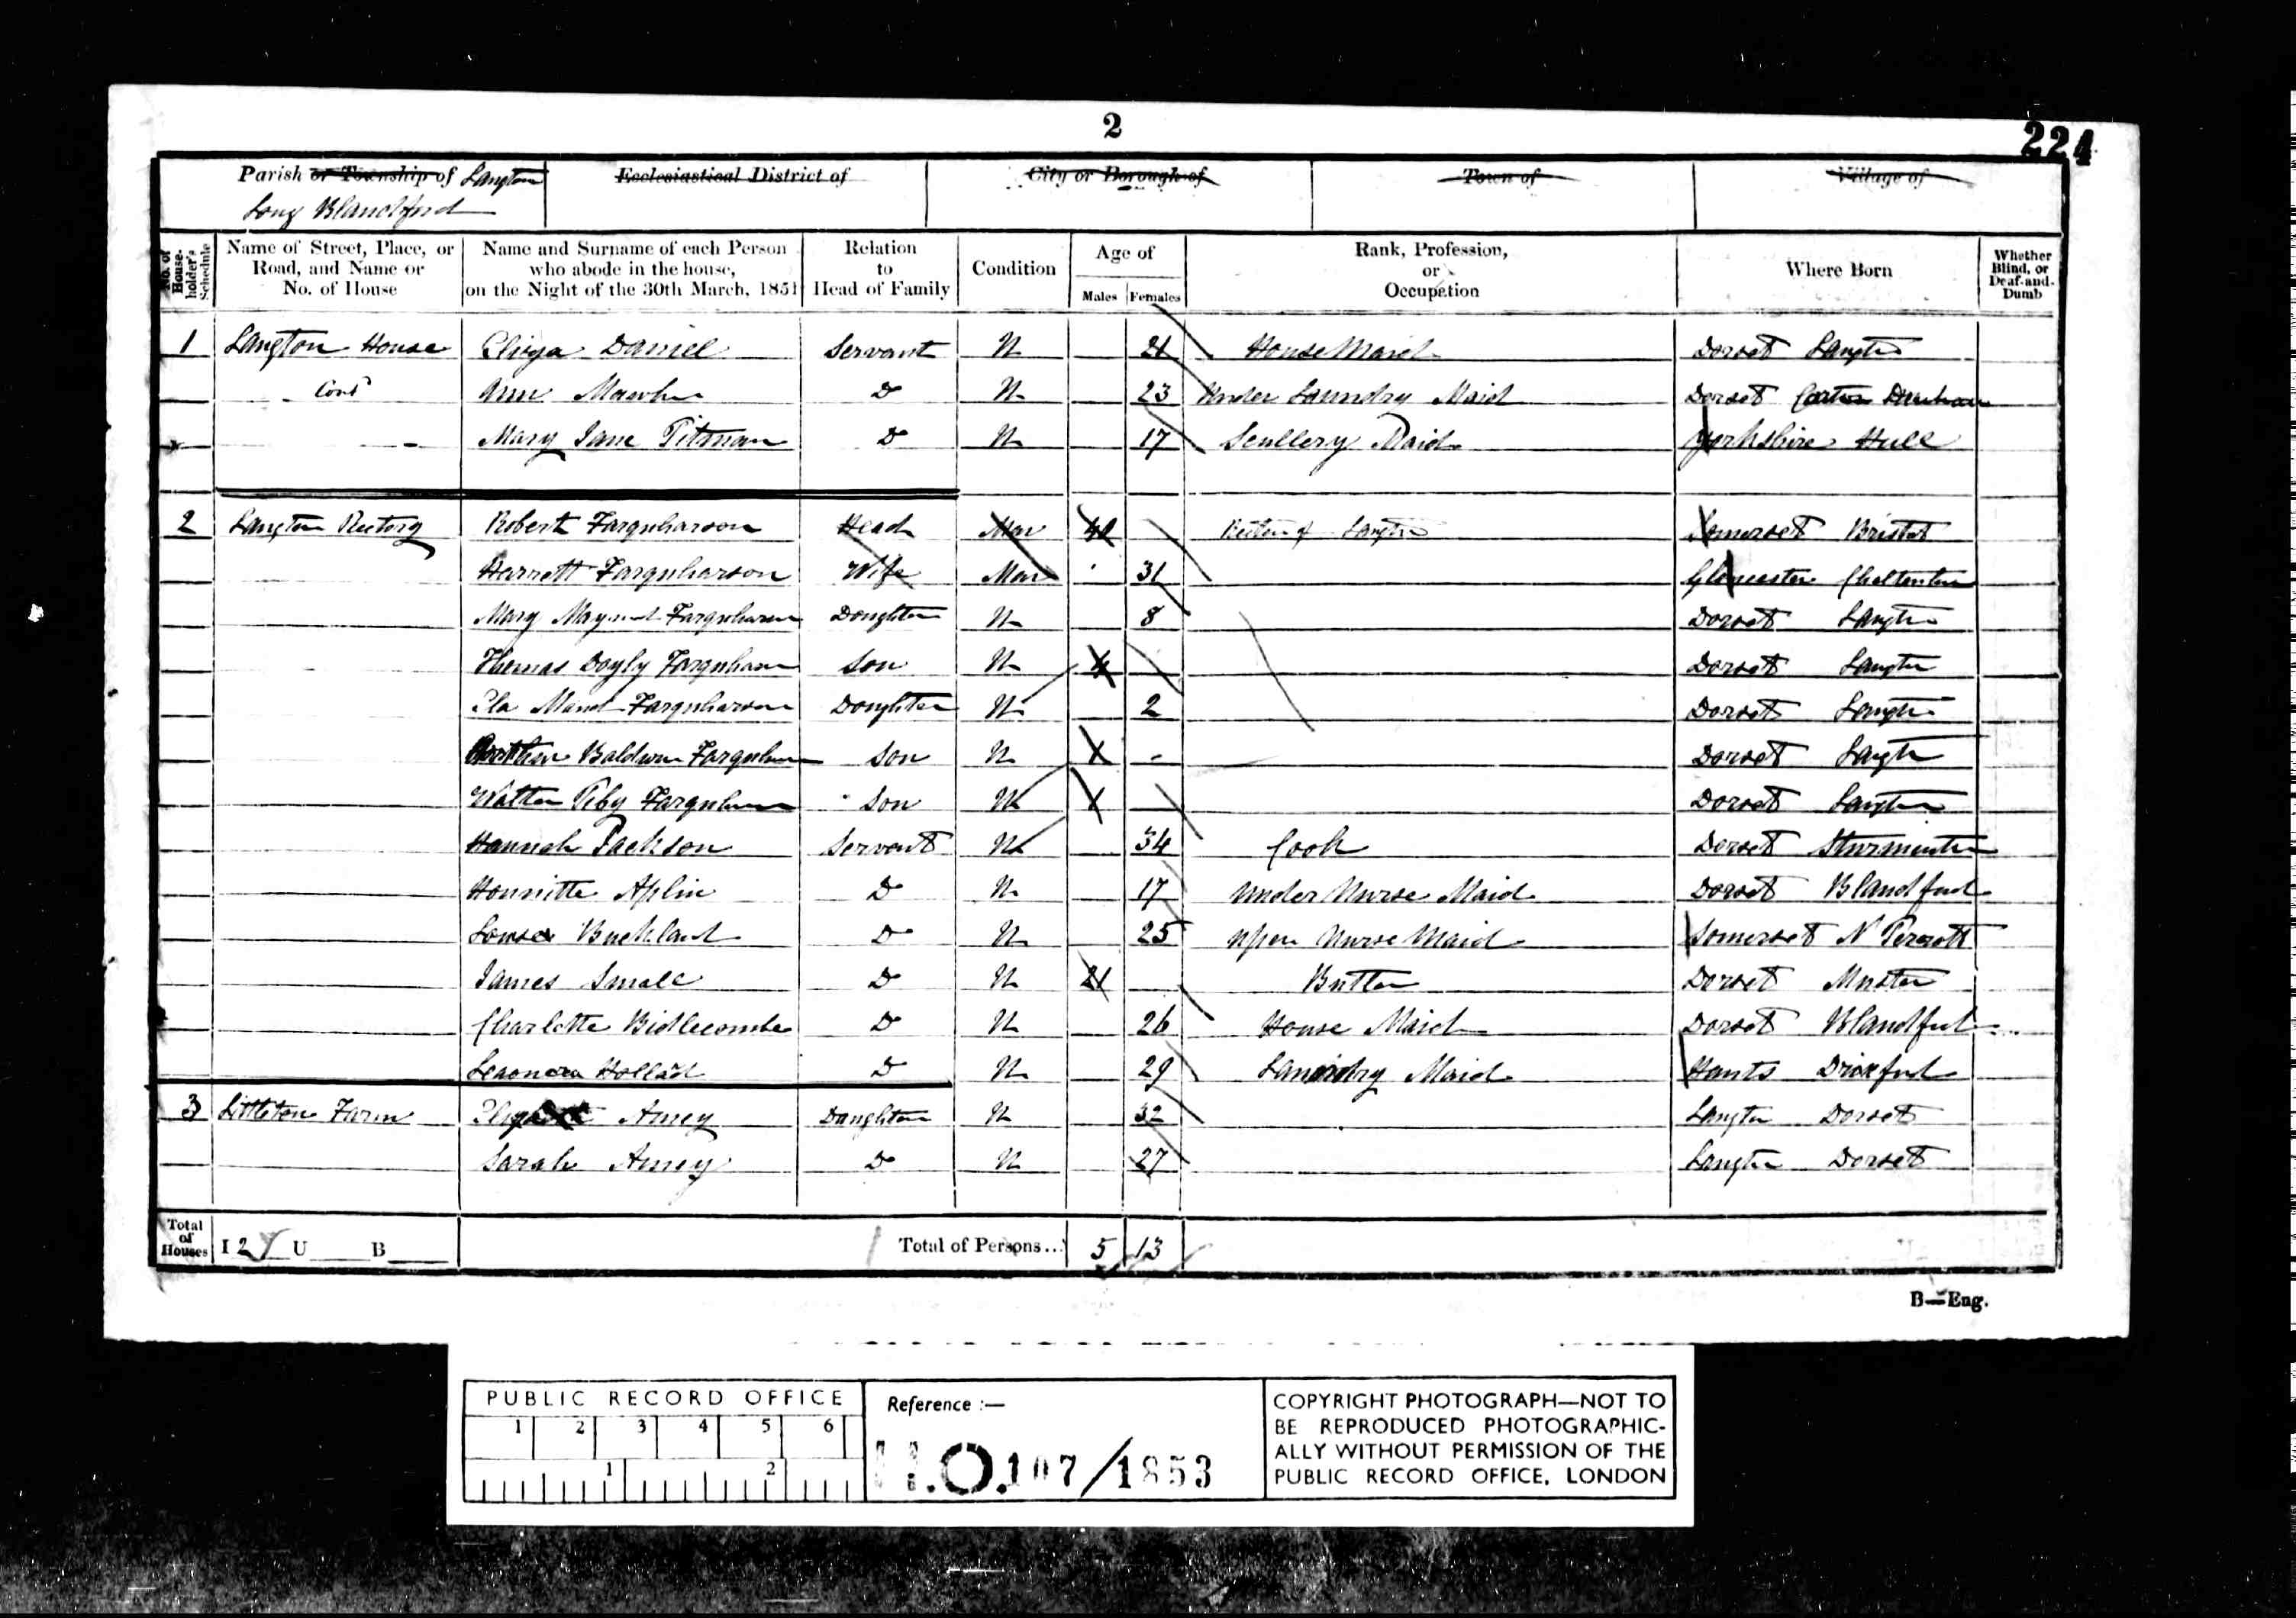 2
224
Parish or Township of Langton
Long Blandford
Ecclesiastical District of
City or Borough of
Town of
Village of
No. of House-holder's Schedule
Name of Street, Place, or Road, and Name or No. of House
Name and Surname of each Person who abode in the house, on the Night of the 30th March, 1851
Relation to Head of Family
Condition
Age of
Males Females
Rank, Profession, or Occupation
Where Born
Whether Blind, or Deaf-and-Dumb
1 Langton House Eliza Daniel Servant U 21 House Maid Dorset Langton
Cont Ann D U 23 Under Laundry Maid Dorset
Mary Jane Pitman D U 17 Scullery Maid Yorkshire Hull
2 Langton Rectory Robert Farquharson Head Mar Rector of Langton Somerset Bristol
Harriett Farquharson Wife Mar 31 Gloucester Cheltenham
Mary Farquharson Daughter U 8 Dorset Langton
Thomas Doyly Farquharson Son U 4 Dorset Langton
Ela Maud Farquharson Daughter U 2 Dorset Langton
Baldwin Farquharson Son U Dorset Langton
Walter Farquharson Son U Dorset Langton
Hannah Jackson Servant U 34 Cook Dorset Sturminster
Honnitte Aplin D U 17 Under Nurse Maid Dorset Blandford
Louisa Buckland D U 25 Upper Nurse Maid Somerset N Perrott
James Small D U 21 Butler Dorset
Charlotte Bidlecombe D U 26 House Maid Dorset Blandford
Leaonora Holland D U 29 Laundry Maid Hants
3 Littleton Farm Amey Daughter U 32 Langton Dorset
Sarah Amey D U 27 Langton Dorset
Total of Houses I 2 U B Total of Persons... 5 13
B—Eng.
PUBLIC RECORD OFFICE
1 2 3 4 5 6
1 2
Reference :—
H.O. 107/1853
COPYRIGHT PHOTOGRAPH—NOT TO
BE REPRODUCED PHOTOGRAPHIC-
ALLY WITHOUT PERMISSION OF THE
PUBLIC RECORD OFFICE, LONDON